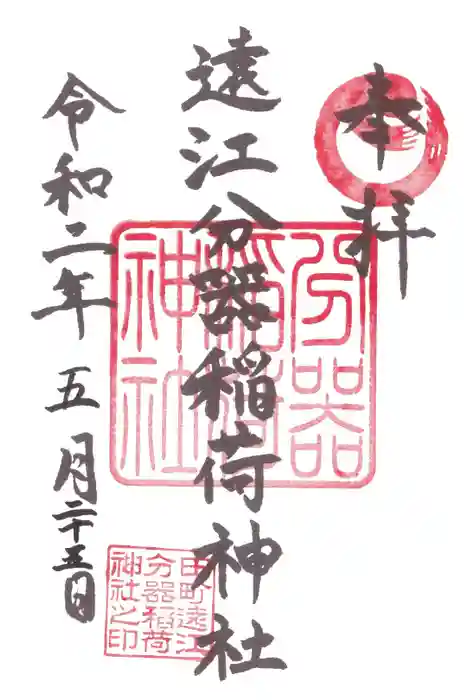 奉拝
遠江分器稲荷神社
令和二年五月二十五日
分器
稲荷
神社
田町遠江
分器稲荷
神社之印